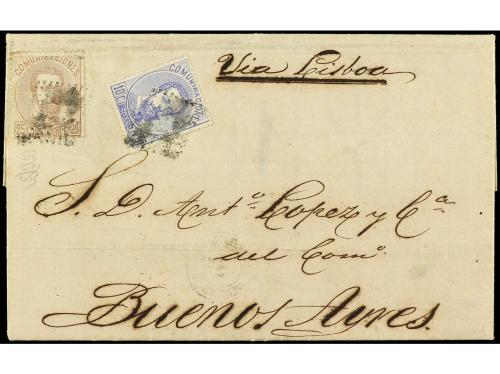 COMUNICACIONES
COMUNICACIONES
Via Lisboa
S. D. Ant.º Lopez y C.ª
del Com.º
Buenos Ayres.